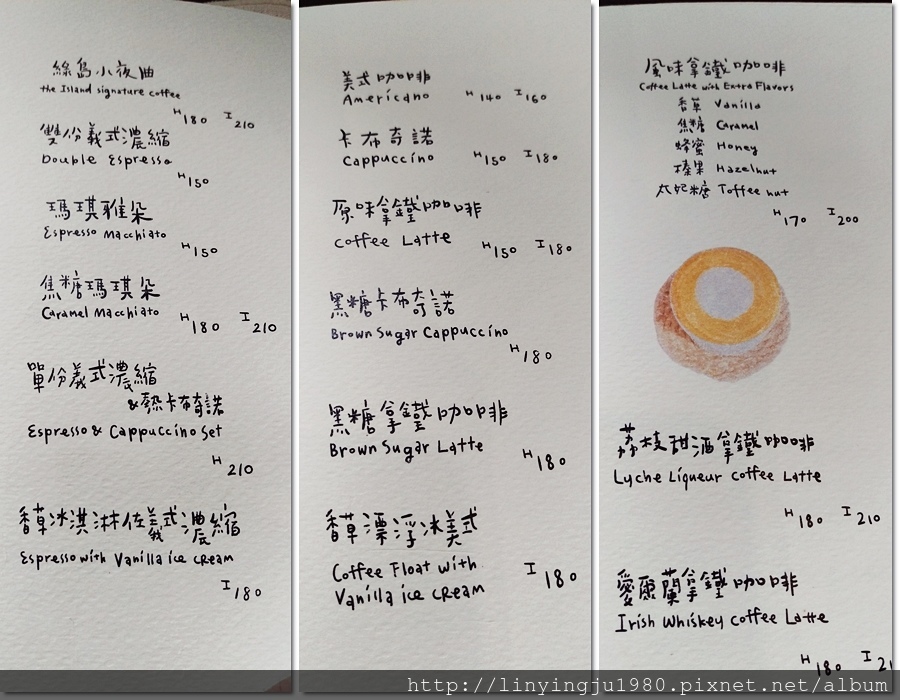 絲島小夜曲
the Island signature coffee
H 180 I 210
雙份義式濃縮
Double Espresso
H 150
瑪琪雅朵
Espresso Macchiato
H 150
焦糖瑪琪朵
Caramel Macchiato
H 180 I 210
單份義式濃縮
&熱卡布奇諾
Espresso & Cappuccino Set
H 210
香草冰淇淋佐義式濃縮
Espresso with Vanilla ice cream
I 180
美式咖啡
Americano H 140 I 160
卡布奇諾
Cappuccino H 150 I 180
原味拿鐵咖啡
Coffee Latte H 150 I 180
黑糖卡布奇諾
Brown Sugar Cappuccino
H 180
黑糖拿鐵咖啡
Brown Sugar Latte
H 180
香草漂浮冰美式
Coffee Float with
Vanilla ice cream I 180
風味拿鐵咖啡
Coffee Latte with Extra Flavors
香草 Vanilla
焦糖 Caramel
蜂蜜 Honey
榛果 Hazelnut
太妃糖 Toffee nut
H 170 I 200
荔枝甜酒拿鐵咖啡
Lyche Liqueur Coffee Latte
H 180 I 210
愛爾蘭拿鐵咖啡
Irish Whiskey Coffee Latte
H 180 I 21
http://linyingju1980.pixnet.net/album